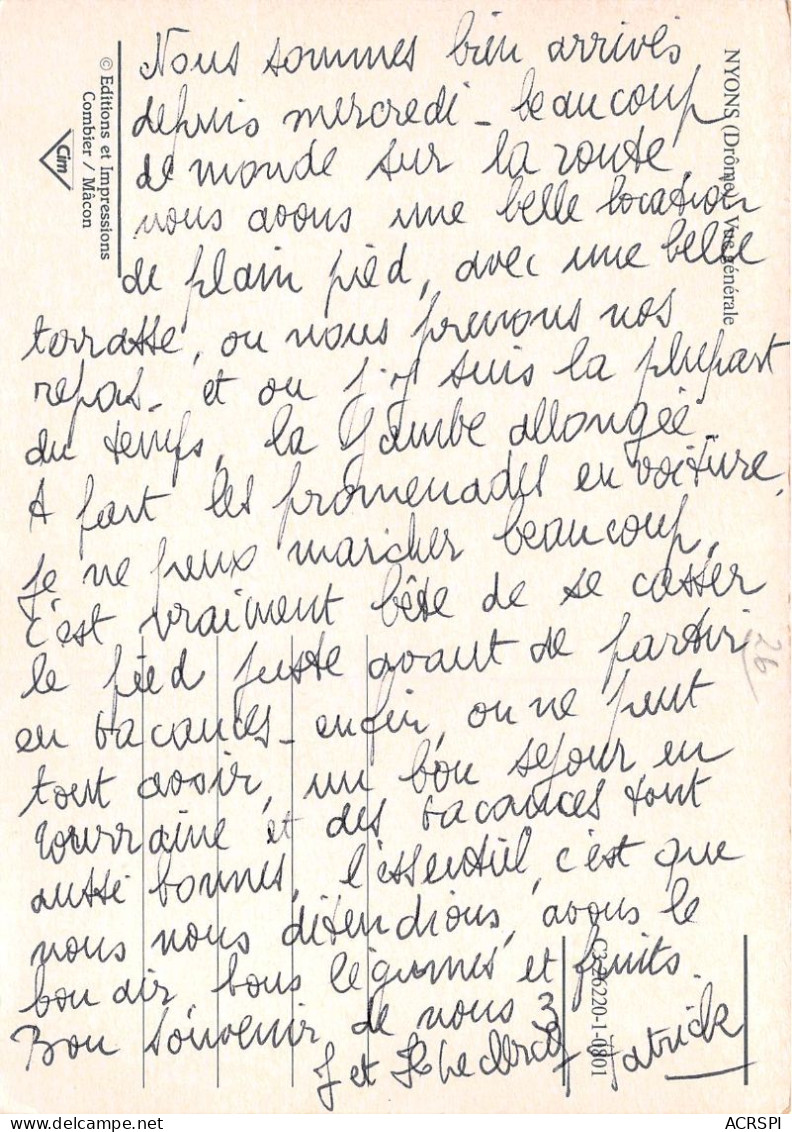 Nous sommes bien arrivés
depuis mercredi - beaucoup
de monde sur la route,
nous avons une belle location
de plain pied, avec une belle
terrasse, ou nous prenons nos
repas - et ou j'y suis la plupart
du temps, la jambe allongée.
A part les promenades en voiture,
je ne peux marcher beaucoup,
c'est vraiment bête de se casser
le pied juste avant de partir
en vacances - enfin, on ne peut
tout avoir, un bon séjour en
tourraine et des vacances tout
aussi bonnes, l'essentiel, c'est que
nous nous détendions, avons le
bon air, bons légumes et fruits.
Bon souvenir de nous 3
J et Patrick
NYONS (Drôme) Vue générale
© Editions et Impressions
Combier / Mâcon
Cim
26
C3-26220-1-0801
ACRSPI